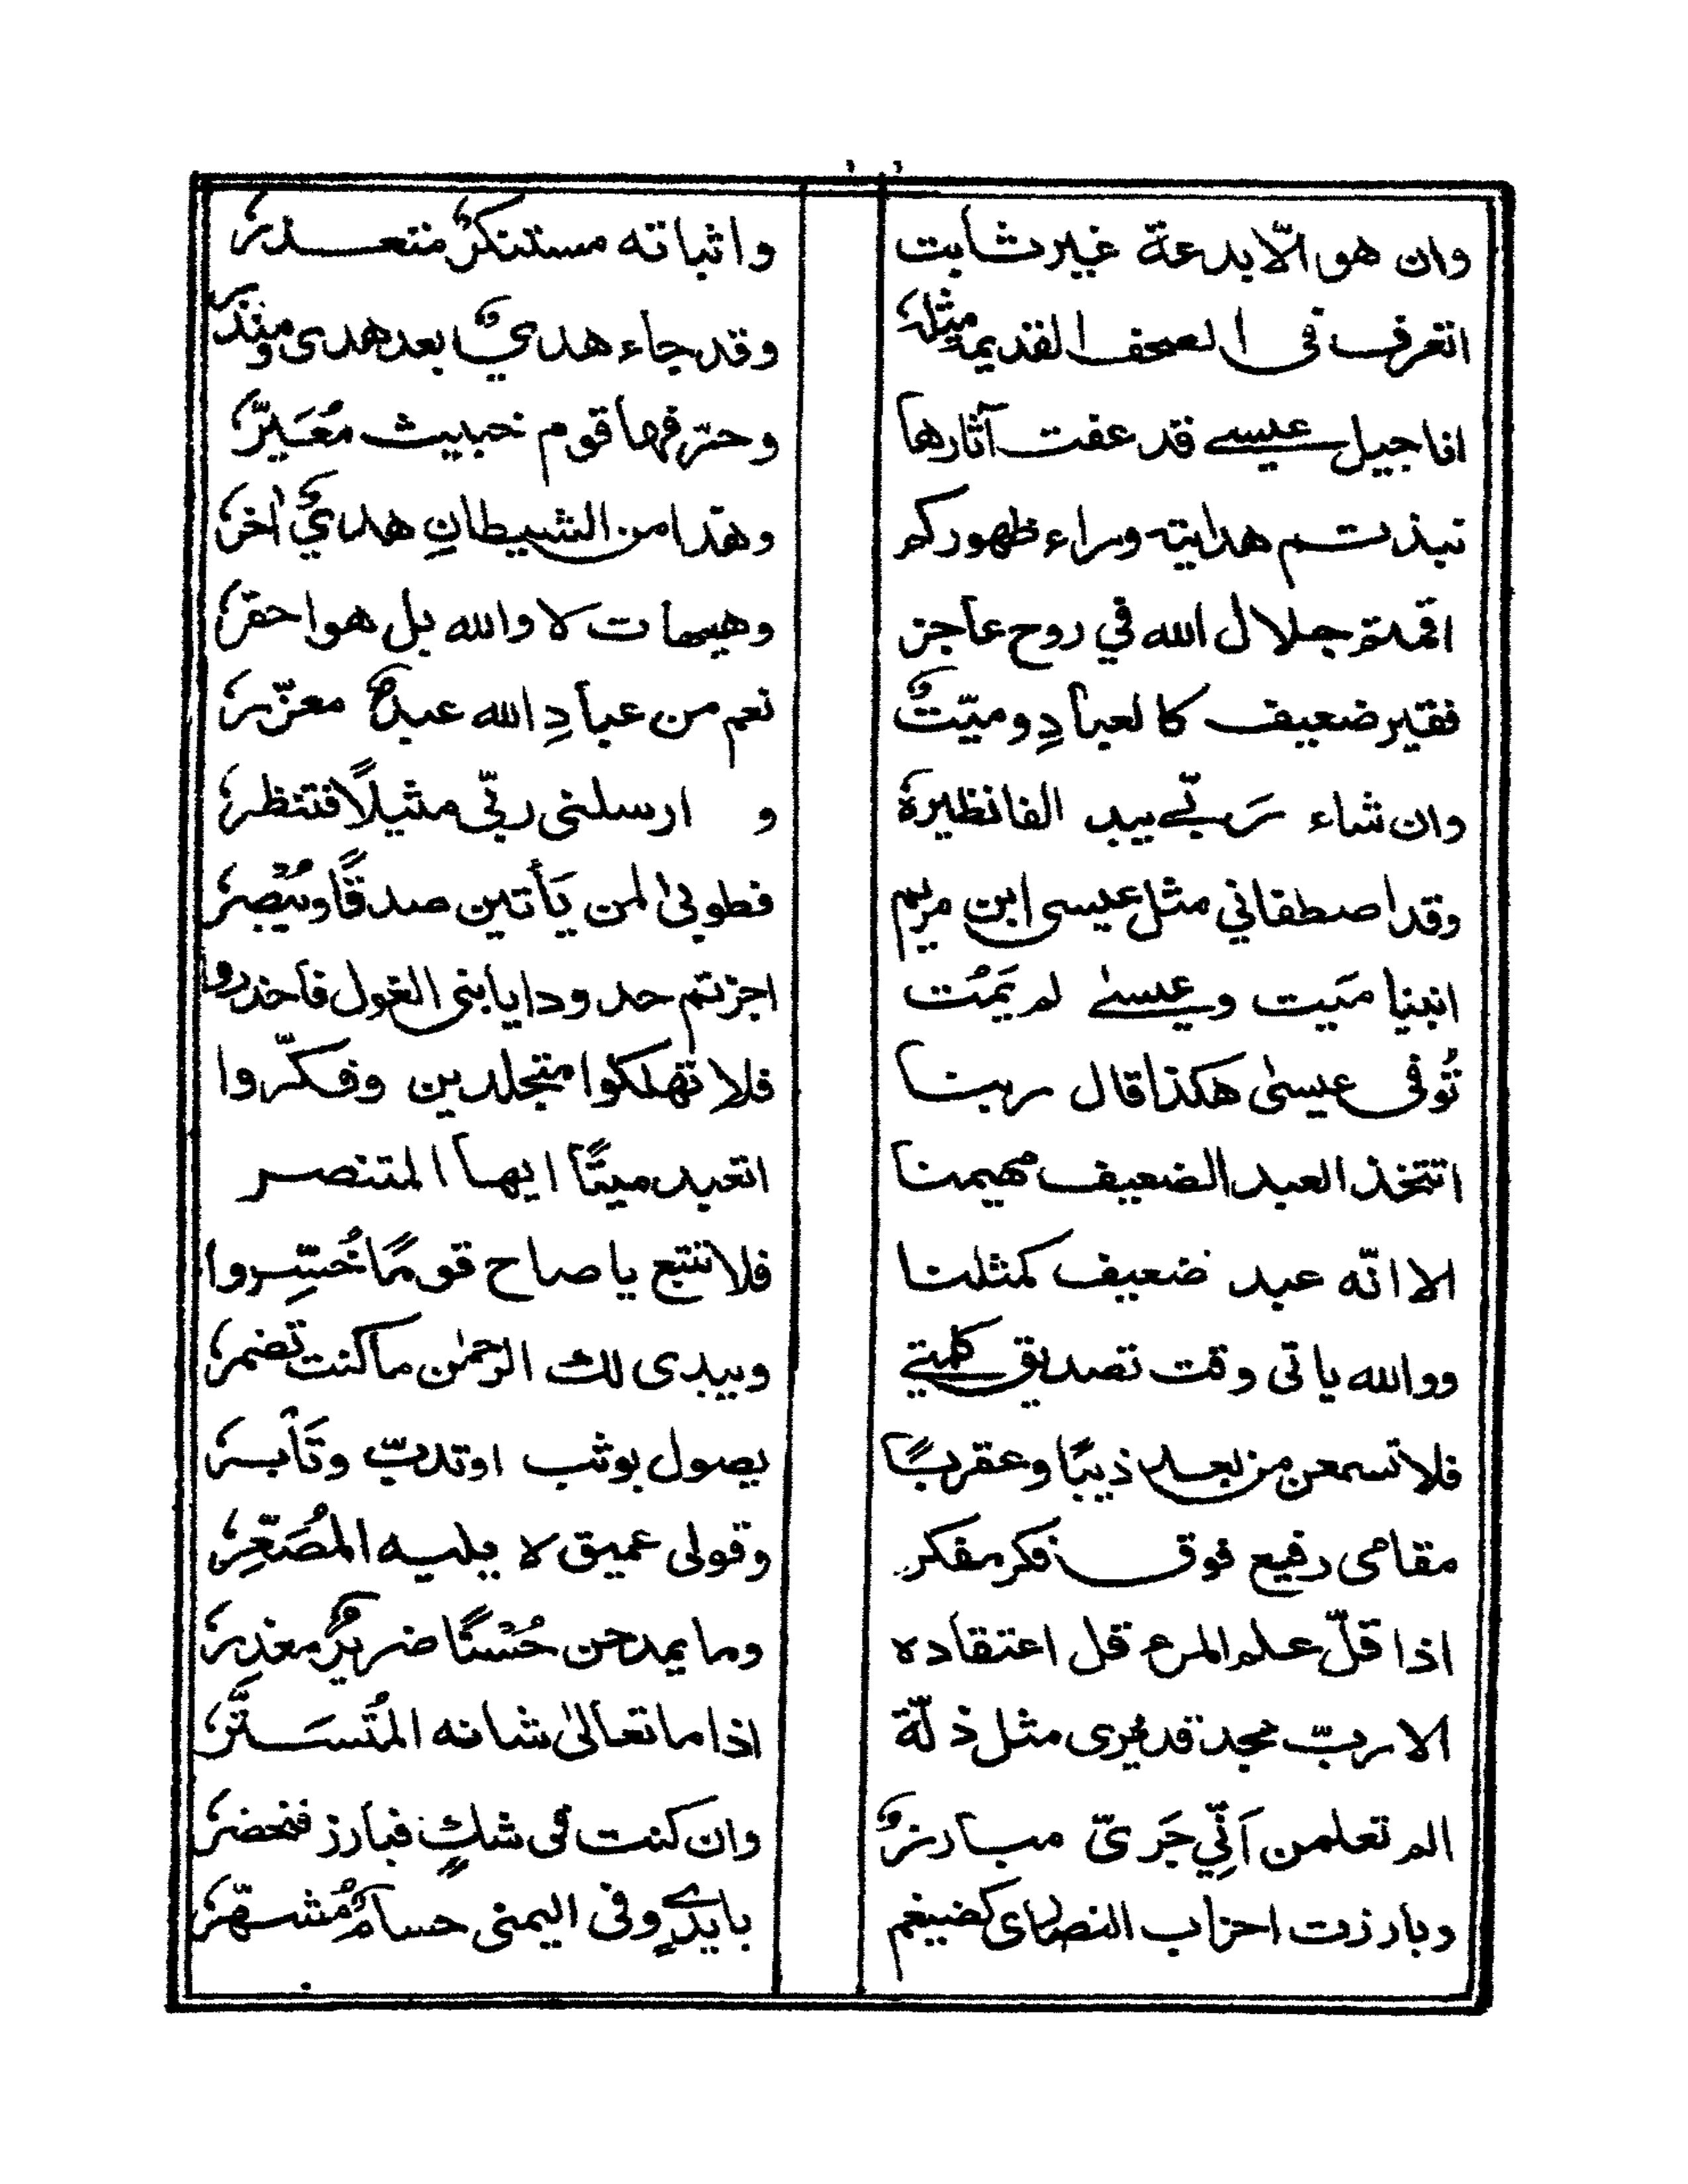 وان هو الّا بدعة غير ثابت واثباته مستنكرٌ متعذر
اتعرف فى الصحف القديمة مثله وقد جاء هديٌ بعد هدى ومنذر
اناجيل عيسے قد عفت آثارها وحرّفها قوم خبيث مُعَيَّرُ
نبذتم هدايته وراء ظهوركم وهذا من الشيطانِ هديٌ اٰخرُ
اقمتم جلال الله في روح عاجز وهيهات لا والله بل هو احقرُ
فقير ضعيف كالعبادِ وميّتٌ نعم من عبادِ الله عبدٌ معزّرُ
وان شاء رَبّے يبد الفا نظيرهٗ و ارسلنى ربّي مثيلًا فتنظرُ
وقد اصطفاني مثل عيسى ابن مريم فطوبىٰ لمن يَأتين صدقًا ويُبْصِرُ
انبنيا مَيت وعيسےٰ لم يَمُت اجزتم حدودا يا بنى الغول فاحذروا
تُوفى عيسىٰ هكذا قال ربنا فلا تهلكوا متجلدين وفكّروا
اتتخذ العبد الضعيف مهيمنا اتعبد ميتًا ايها المتنصر
الا انّه عبد ضعيف كمثلنا فلا تتبع يا صاح قومًا خُسِّروا
ووالله ياتى وقت تصديق كلمتے ويبدى لك الرحمٰن ما كنت تضمرُ
فلا تسمعن من بعد ذيبًا وعقربًا يصول بوثب او تدبّ وتَأبرُ
مقامى رفيع فوق فكر مفكر وقولى عميق لا يليه المُصَعِّرُ
اذا قلّ علم المرء قل اعتقاده وما يمدحن حُسْنًا ضريرٌ معذرُ
الا ربّ مجد قد يُرى مثل ذلّة اذا ما تعالىٰ شانه المُتَسَتَّرُ
الم تعلمن اَنّي جَرىّ مبارزٌ وان كنت فى شكٍ فبارز فنحضرُ
وبارزت احزاب النصارىٰ كضيغم بايدےٍ وفى اليمنى حسامٌ مُشهّرُ